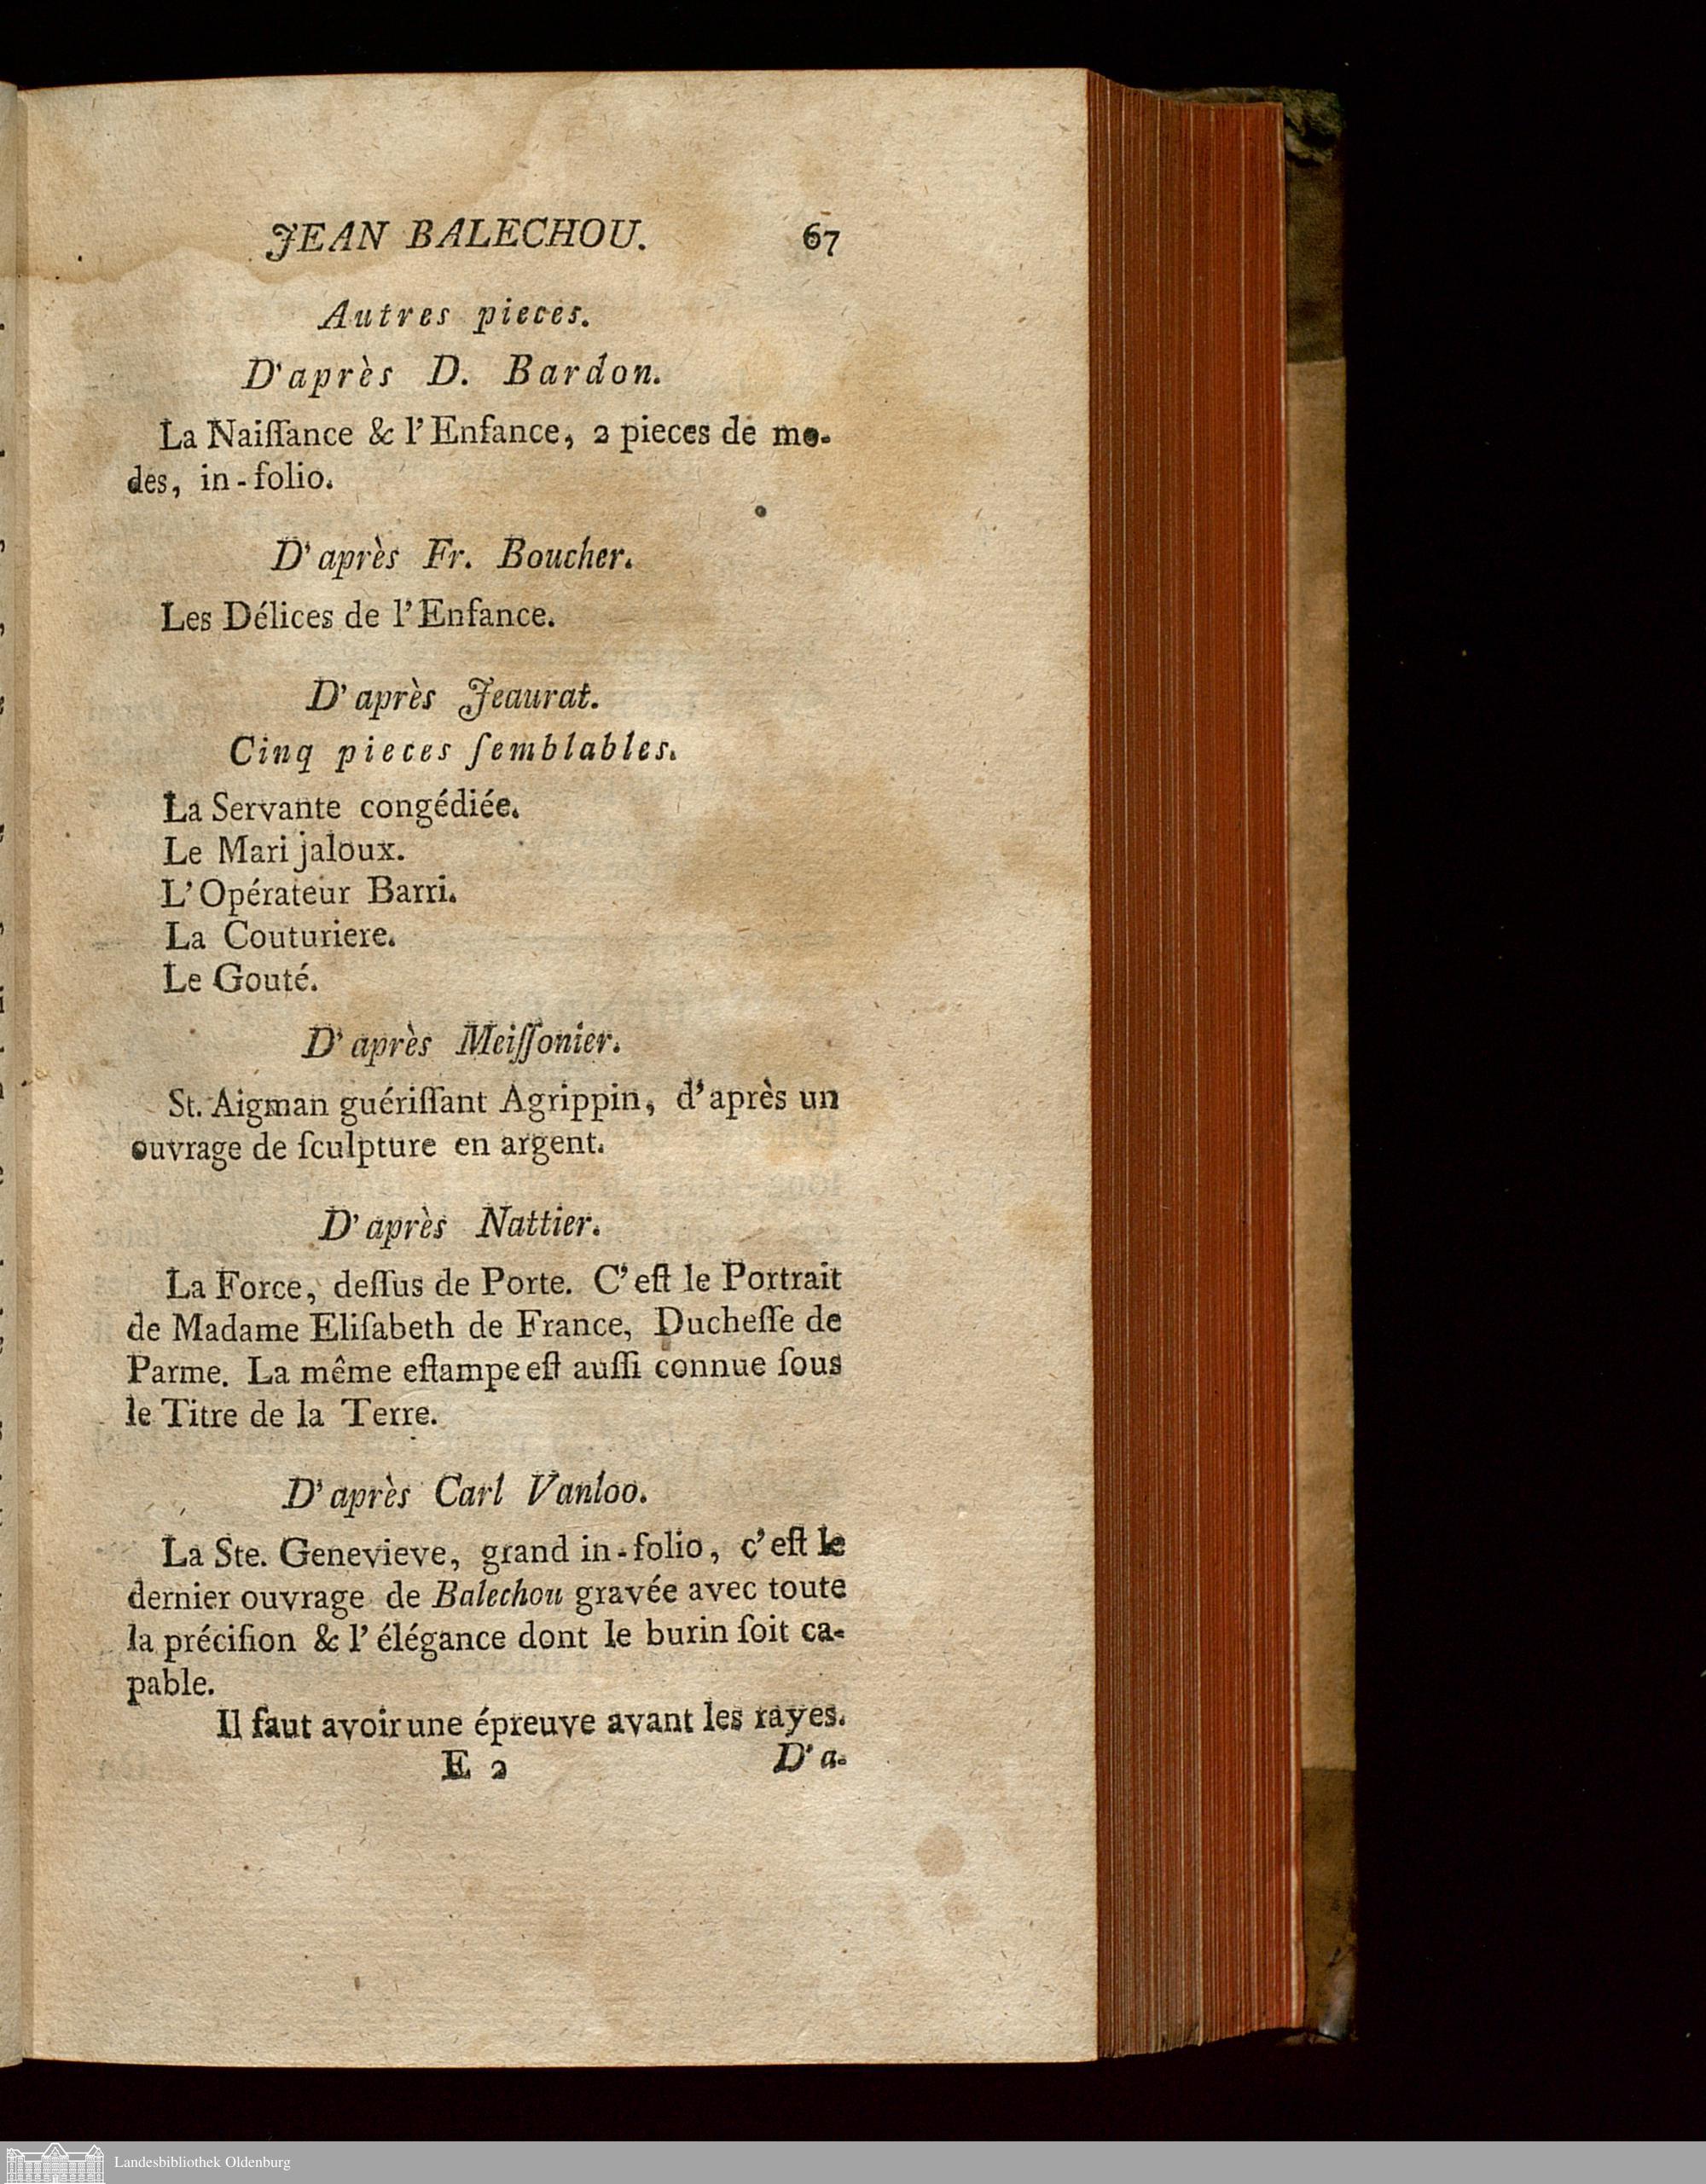 JEAN BALECHOU. 67
Autres pieces.
D'après D. Bardon.
La Naiſſance & l'Enfance, 2 pieces de mo-
des, in-folio.
D'après Fr. Boucher.
Les Délices de l'Enfance.
D'après Jeaurat.
Cinq pieces ſemblables.
La Servante congédiée.
Le Mari jaloux.
L'Opérateur Barri.
La Couturiere.
Le Gouté.
D'après Meiſſonier.
St. Aigman guériſſant Agrippin, d'après un
ouvrage de ſculpture en argent.
D'après Nattier.
La Force, deſſus de Porte. C'eſt le Portrait
de Madame Eliſabeth de France, Ducheſſe de
Parme. La même eſtampe eſt auſſi connue ſous
le Titre de la Terre.
D'après Carl Vanloo.
La Ste. Genevieve, grand in-folio, c'eſt le
dernier ouvrage de Balechou gravée avec toute
la préciſion & l'élégance dont le burin ſoit ca-
pable.
Il faut avoir une épreuve avant les rayes.
E 2 D'a-
Landesbibliothek Oldenburg